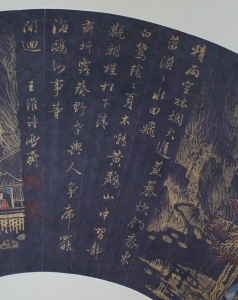 積雨空林烟火遲蒸藜炊黍餉東
菑漠〻水田飛
白鷺陰〻夏木囀黃鸝山中習靜
觀朝槿松下清
齋折露葵野老與人爭席罷
海鷗何事
王維詩